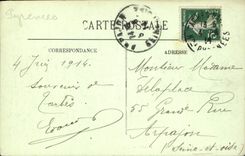 Pyrénées
CARTE POSTALE
CORRESPONDANCE
ADRESSE
4 Juin 1914.
Souvenir de
Tarbes
Monsieur Madame
Delaplace
55 Grande Rue
Arpajon
(Seine et Oise)